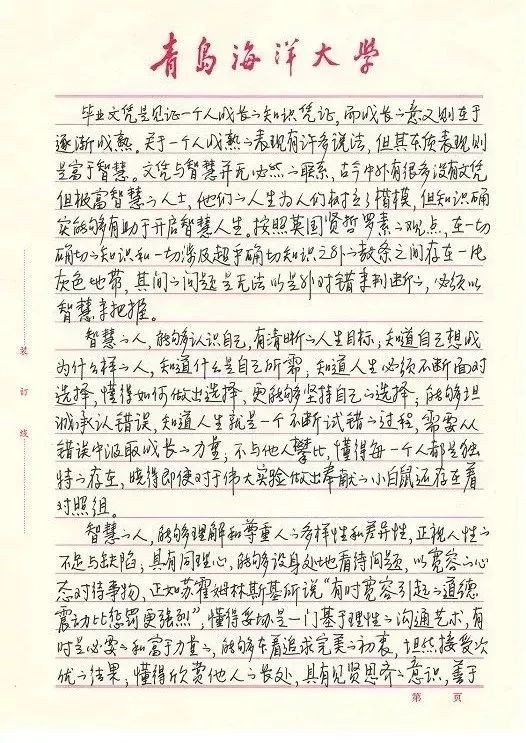 青岛海洋大学
毕业文凭是见证一个人成长的知识凭证，而成长的意义则在于
逐渐成熟。关于一个人成熟的表现有许多说法，但其本质表现则
是富于智慧。文凭与智慧并无必然的联系，古今中外有很多没有文凭
但极富智慧的人士，他们的人生为人们树立了楷模，但知识确
实能够有助于开启智慧人生。按照英国贤哲罗素的观点，在一切
确切的知识和一切涉及超乎确切知识之外的教条之间存在一片
灰色地带，其间的问题是无法以是非对错来判断的，必须以
智慧来把握。
智慧的人，能够认识自己，有清晰的人生目标，知道自己想成
为什么样的人，知道什么是自己所需，知道人生必须不断面对
选择，懂得如何做出选择，更能够坚持自己的选择；能够坦
诚承认错误，知道人生就是一个不断试错的过程，需要从
错误中汲取成长的力量，不与他人攀比，懂得每一个人都是独
特的存在，晓得即使对于伟大实验做出奉献的小白鼠还存在着
对照组。
智慧的人，能够理解和尊重人的多样性和差异性，正视人性的
不足与缺陷；具有同理心，能够设身处地看待问题，以宽容的心
态对待事物，正如苏霍姆林斯基所说“有时宽容引起的道德
震动比惩罚更强烈”，懂得妥协是一门基于理性的沟通艺术，有
时是必要的和富于力量的，能够本着追求完美的初衷，坦然接受次
优的结果，懂得欣赏他人的长处，具有见贤思齐的意识，善于
装
订
线
第 页